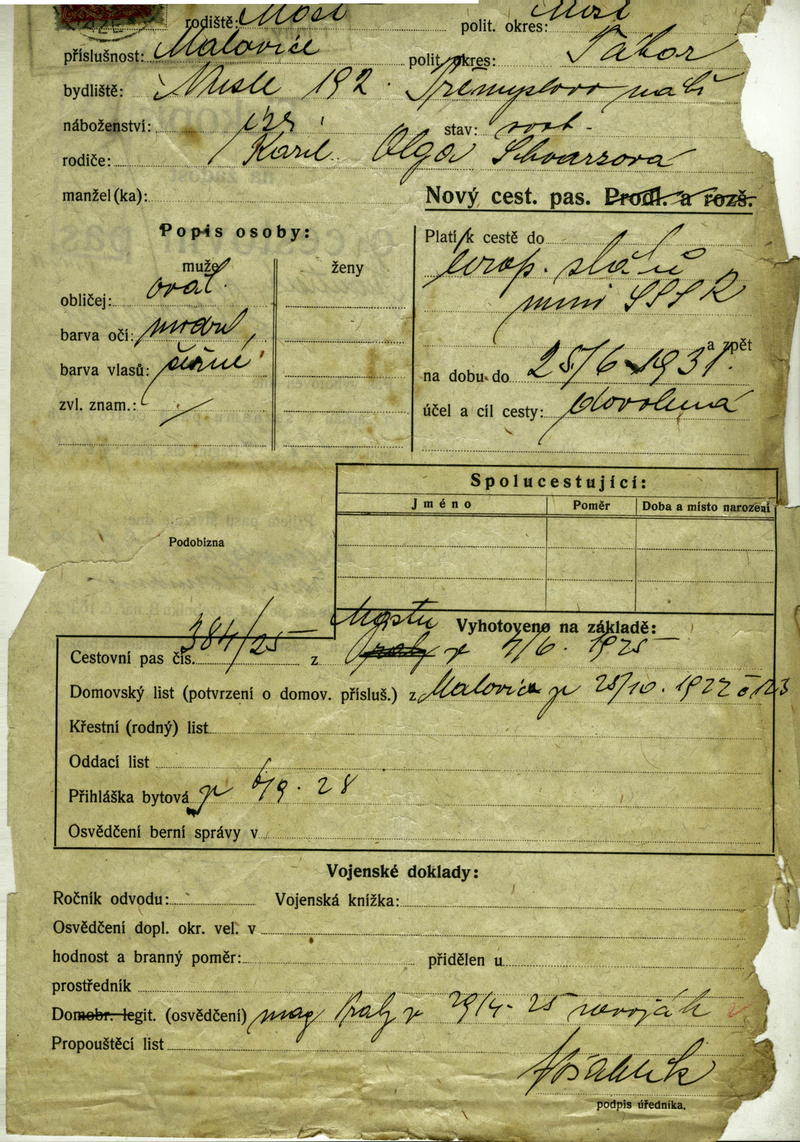 rodiště: Most polit. okres: Most
příslušnost: Malovice polit. okres: Tábor
bydliště: Nusle 192. Přemyslovo nábř
náboženství: izr. stav: svob.
rodiče: Karel Olga Schwarzová
manžel(ka):
Nový cest. pas. Prodl. a rozš.
Popis osoby:
muže ženy
obličej: ovál.
barva očí: modré,
barva vlasů: černé
zvl. znam.: ⁄
Platí k cestě do
evrop. států
mimo SSSR
a zpět
na dobu do 25/6 1931.
účel a cíl cesty: dovolená
Podobizna
Spolucestující:
Jméno Poměr Doba a místo narození
Vyhotoveno na základě:
Cestovní pas čís. 384/25 z Mostu Prahy z 4/6. 1925
Domovský list (potvrzení o domov. přísluš.) z Malovic ze 25/10. 1922 č 123
Křestní (rodný) list
Oddací list
Přihláška bytová ze 6/9. 28
Osvědčení berní správy v
Vojenské doklady:
Ročník odvodu: Vojenská knížka:
Osvědčení dopl. okr. vel. v
hodnost a branný poměr: přidělen u
prostředník
Domobr. legit. (osvědčení) mag Prahy z 29/4. 25 nevoják
Propouštěcí list
podpis úředníka.